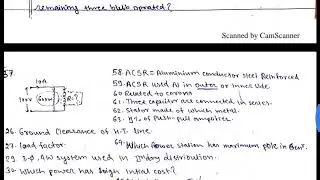 remaining three bulb operated?
Scanned by CamScanner
57.
10A
100V
600W
R=?
26. Ground clearance of H.T. line
27. load factor
29. 3-ϕ, 4W system used in IIndary distribution.
30. Which power has high initial cost?
58. ACSR = Aluminium conductor steel Reinforced
59. ACSR used Al in outer or Inner side
60. Related to corona
61. Three capacitor are connected in series.
62. Stator made of which metal
63. η% of Push-Pull amplifier.
64. Which Power station has maximum pole in Gen.